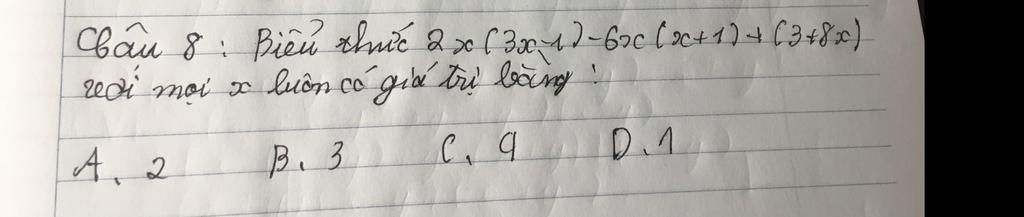 Câu 8 : Biểu thức 2x(3x-1)-6x(x+1)+(3+8x)
với mọi x luôn có giá trị bằng :
A. 2 B. 3 C. 4 D. 1